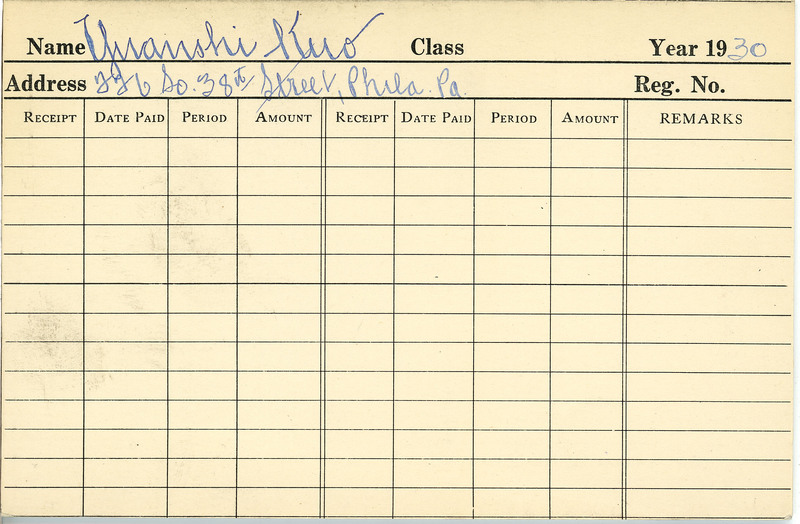 Name Yuanshi Kuo Class Year 1930
Address 226 So. 38th Street, Phila. Pa. Reg. No.
RECEIPT DATE PAID PERIOD AMOUNT RECEIPT DATE PAID PERIOD AMOUNT REMARKS